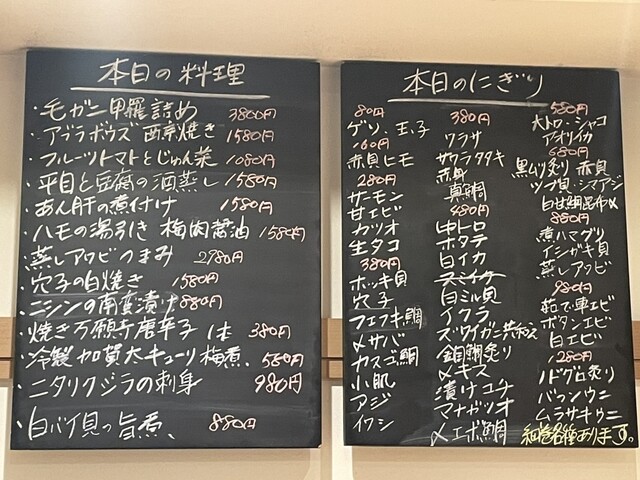 本日の料理
・毛ガニ甲羅詰め 3800円
・アブラボウズ西京焼き 1580円
・フルーツトマトとじゅん菜 1080円
・平目と豆腐の酒蒸し 1580円
・あん肝の煮付け 1580円
・ハモの湯引き 梅肉醤油 1580円
・蒸しアワビつまみ 2980円
・穴子の白焼き 1580円
・ニシンの南蛮漬け 880円
・焼き万願寺唐辛子 1本 380円
・冷製 加賀太キューリ梅煮 580円
・ニタリクジラの刺身 980円
・白バイ貝の旨煮 880円
本日のにぎり
80円
ゲソ、玉子
160円
赤貝ヒモ
280円
サーモン
甘エビ
カツオ
生タコ
380円
ホッキ貝
穴子
フエフキ鯛
〆サバ
カスゴ鯛
小肌
アジ
イワシ
380円
ワラサ
サワラタタキ
赤身
真鯛
480円
中トロ
ホタテ
白イカ
スミイカ
白ミル貝
イクラ
ズワイガニ共和え
銀鯛炙り
〆キス
漬けコチ
マナガツオ
〆エボ鯛
580円
大トロ・シャコ
アオリイカ
680円
黒ムツ炙り 赤貝
ツブ貝・シマアジ
白甘鯛昆布〆
880円
煮ハマグリ
イシガキ貝
蒸しアワビ
980円
茹で車エビ
ボタンエビ
白エビ
1280円
ノドグロ炙り
バフンウニ
ムラサキウニ
細巻各種あります。